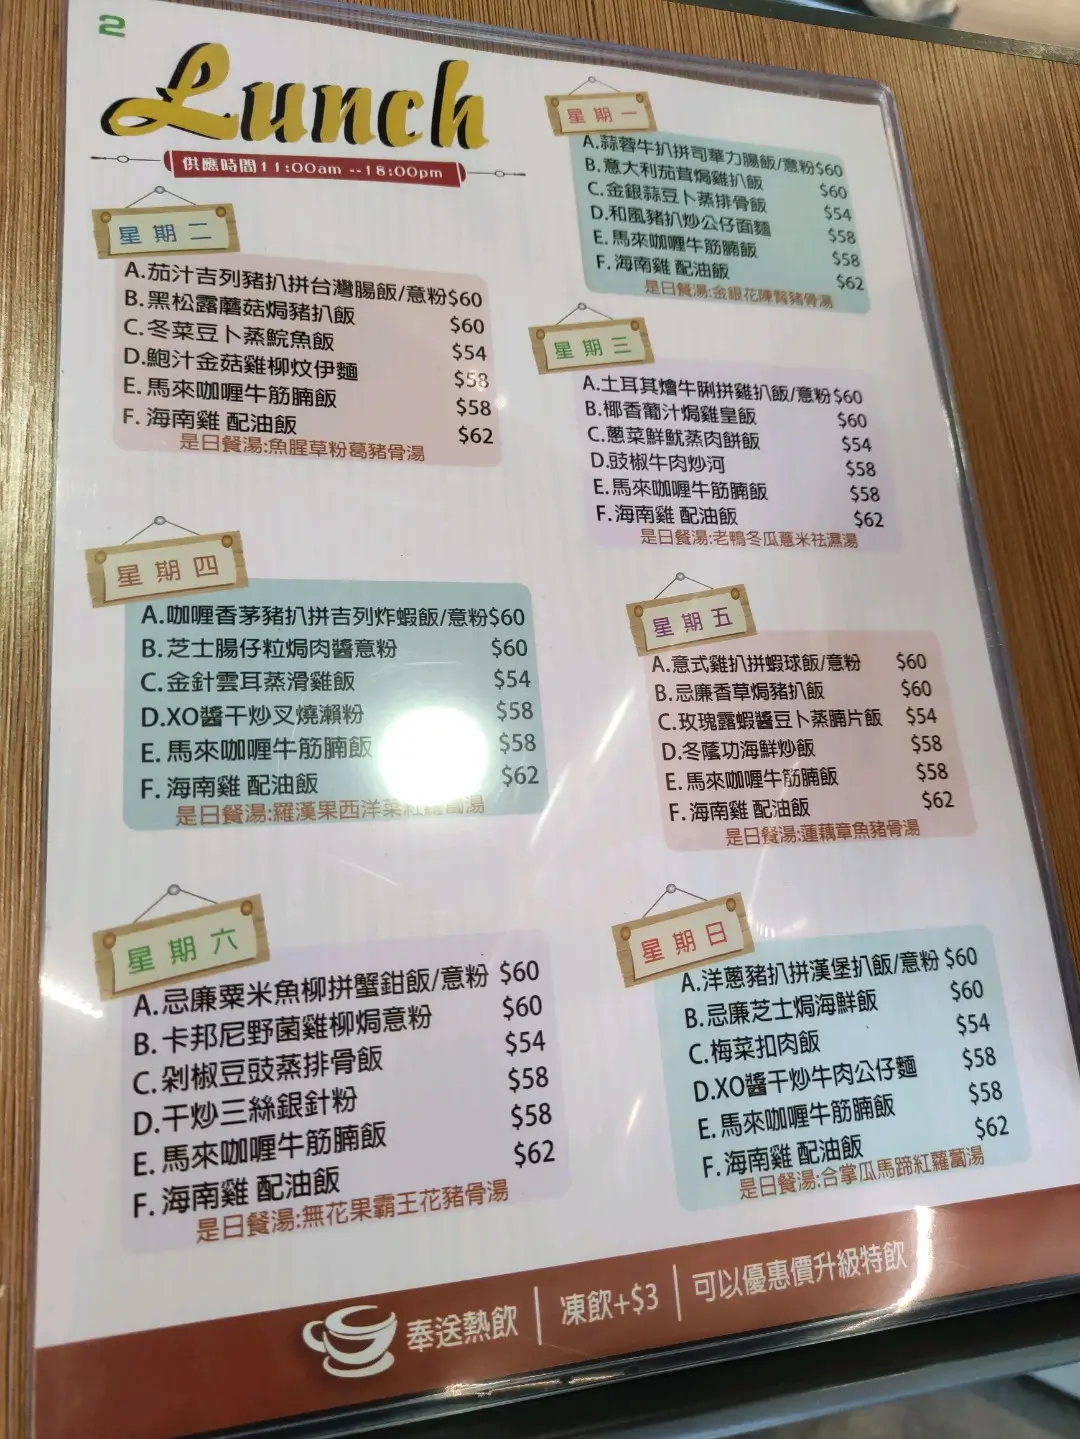 2
Lunch
供應時間11:00am --18:00pm
星期一
A.蒜蓉牛扒拼司華力腸飯/意粉$60
B.意大利茄茸焗雞扒飯 $60
C.金銀蒜豆卜蒸排骨飯 $54
D.和風豬扒炒公仔面麵 $58
E.馬來咖喱牛筋腩飯 $58
F.海南雞 配油飯 $62
是日餐湯:金銀花陳腎豬骨湯
星期二
A.茄汁吉列豬扒拼台灣腸飯/意粉$60
B.黑松露蘑菇焗豬扒飯 $60
C.冬菜豆卜蒸鯇魚飯 $54
D.鮑汁金菇雞柳炆伊麵 $58
E.馬來咖喱牛筋腩飯 $58
F.海南雞 配油飯 $62
是日餐湯:魚腥草粉葛豬骨湯
星期三
A.土耳其燴牛脷拼雞扒飯/意粉$60
B.椰香葡汁焗雞皇飯 $60
C.蔥菜鮮魷蒸肉餅飯 $54
D.豉椒牛肉炒河 $58
E.馬來咖喱牛筋腩飯 $58
F.海南雞 配油飯 $62
是日餐湯:老鴨冬瓜薏米祛濕湯
星期四
A.咖喱香茅豬扒拼吉列炸蝦飯/意粉$60
B.芝士腸仔粒焗肉醬意粉 $60
C.金針雲耳蒸滑雞飯 $54
D.XO醬干炒叉燒瀨粉 $58
E.馬來咖喱牛筋腩飯 $58
F.海南雞 配油飯 $62
是日餐湯:羅漢果西洋菜紅蘿蔔湯
星期五
A.意式雞扒拼蝦球飯/意粉 $60
B.忌廉香草焗豬扒飯 $60
C.玫瑰露蝦醬豆卜蒸腩片飯 $54
D.冬蔭功海鮮炒飯 $58
E.馬來咖喱牛筋腩飯 $58
F.海南雞 配油飯 $62
是日餐湯:蓮藕章魚豬骨湯
星期六
A.忌廉粟米魚柳拼蟹鉗飯/意粉 $60
B.卡邦尼野菌雞柳焗意粉 $60
C.剁椒豆豉蒸排骨飯 $54
D.干炒三絲銀針粉 $58
E.馬來咖喱牛筋腩飯 $58
F.海南雞 配油飯 $62
是日餐湯:無花果霸王花豬骨湯
星期日
A.洋蔥豬扒拼漢堡扒飯/意粉 $60
B.忌廉芝士焗海鮮飯 $60
C.梅菜扣肉飯 $54
D.XO醬干炒牛肉公仔麵 $58
E.馬來咖喱牛筋腩飯 $58
F.海南雞 配油飯 $62
是日餐湯:合掌瓜馬蹄紅蘿蔔湯
奉送熱飲 | 凍飲+$3 | 可以優惠價升級特飲